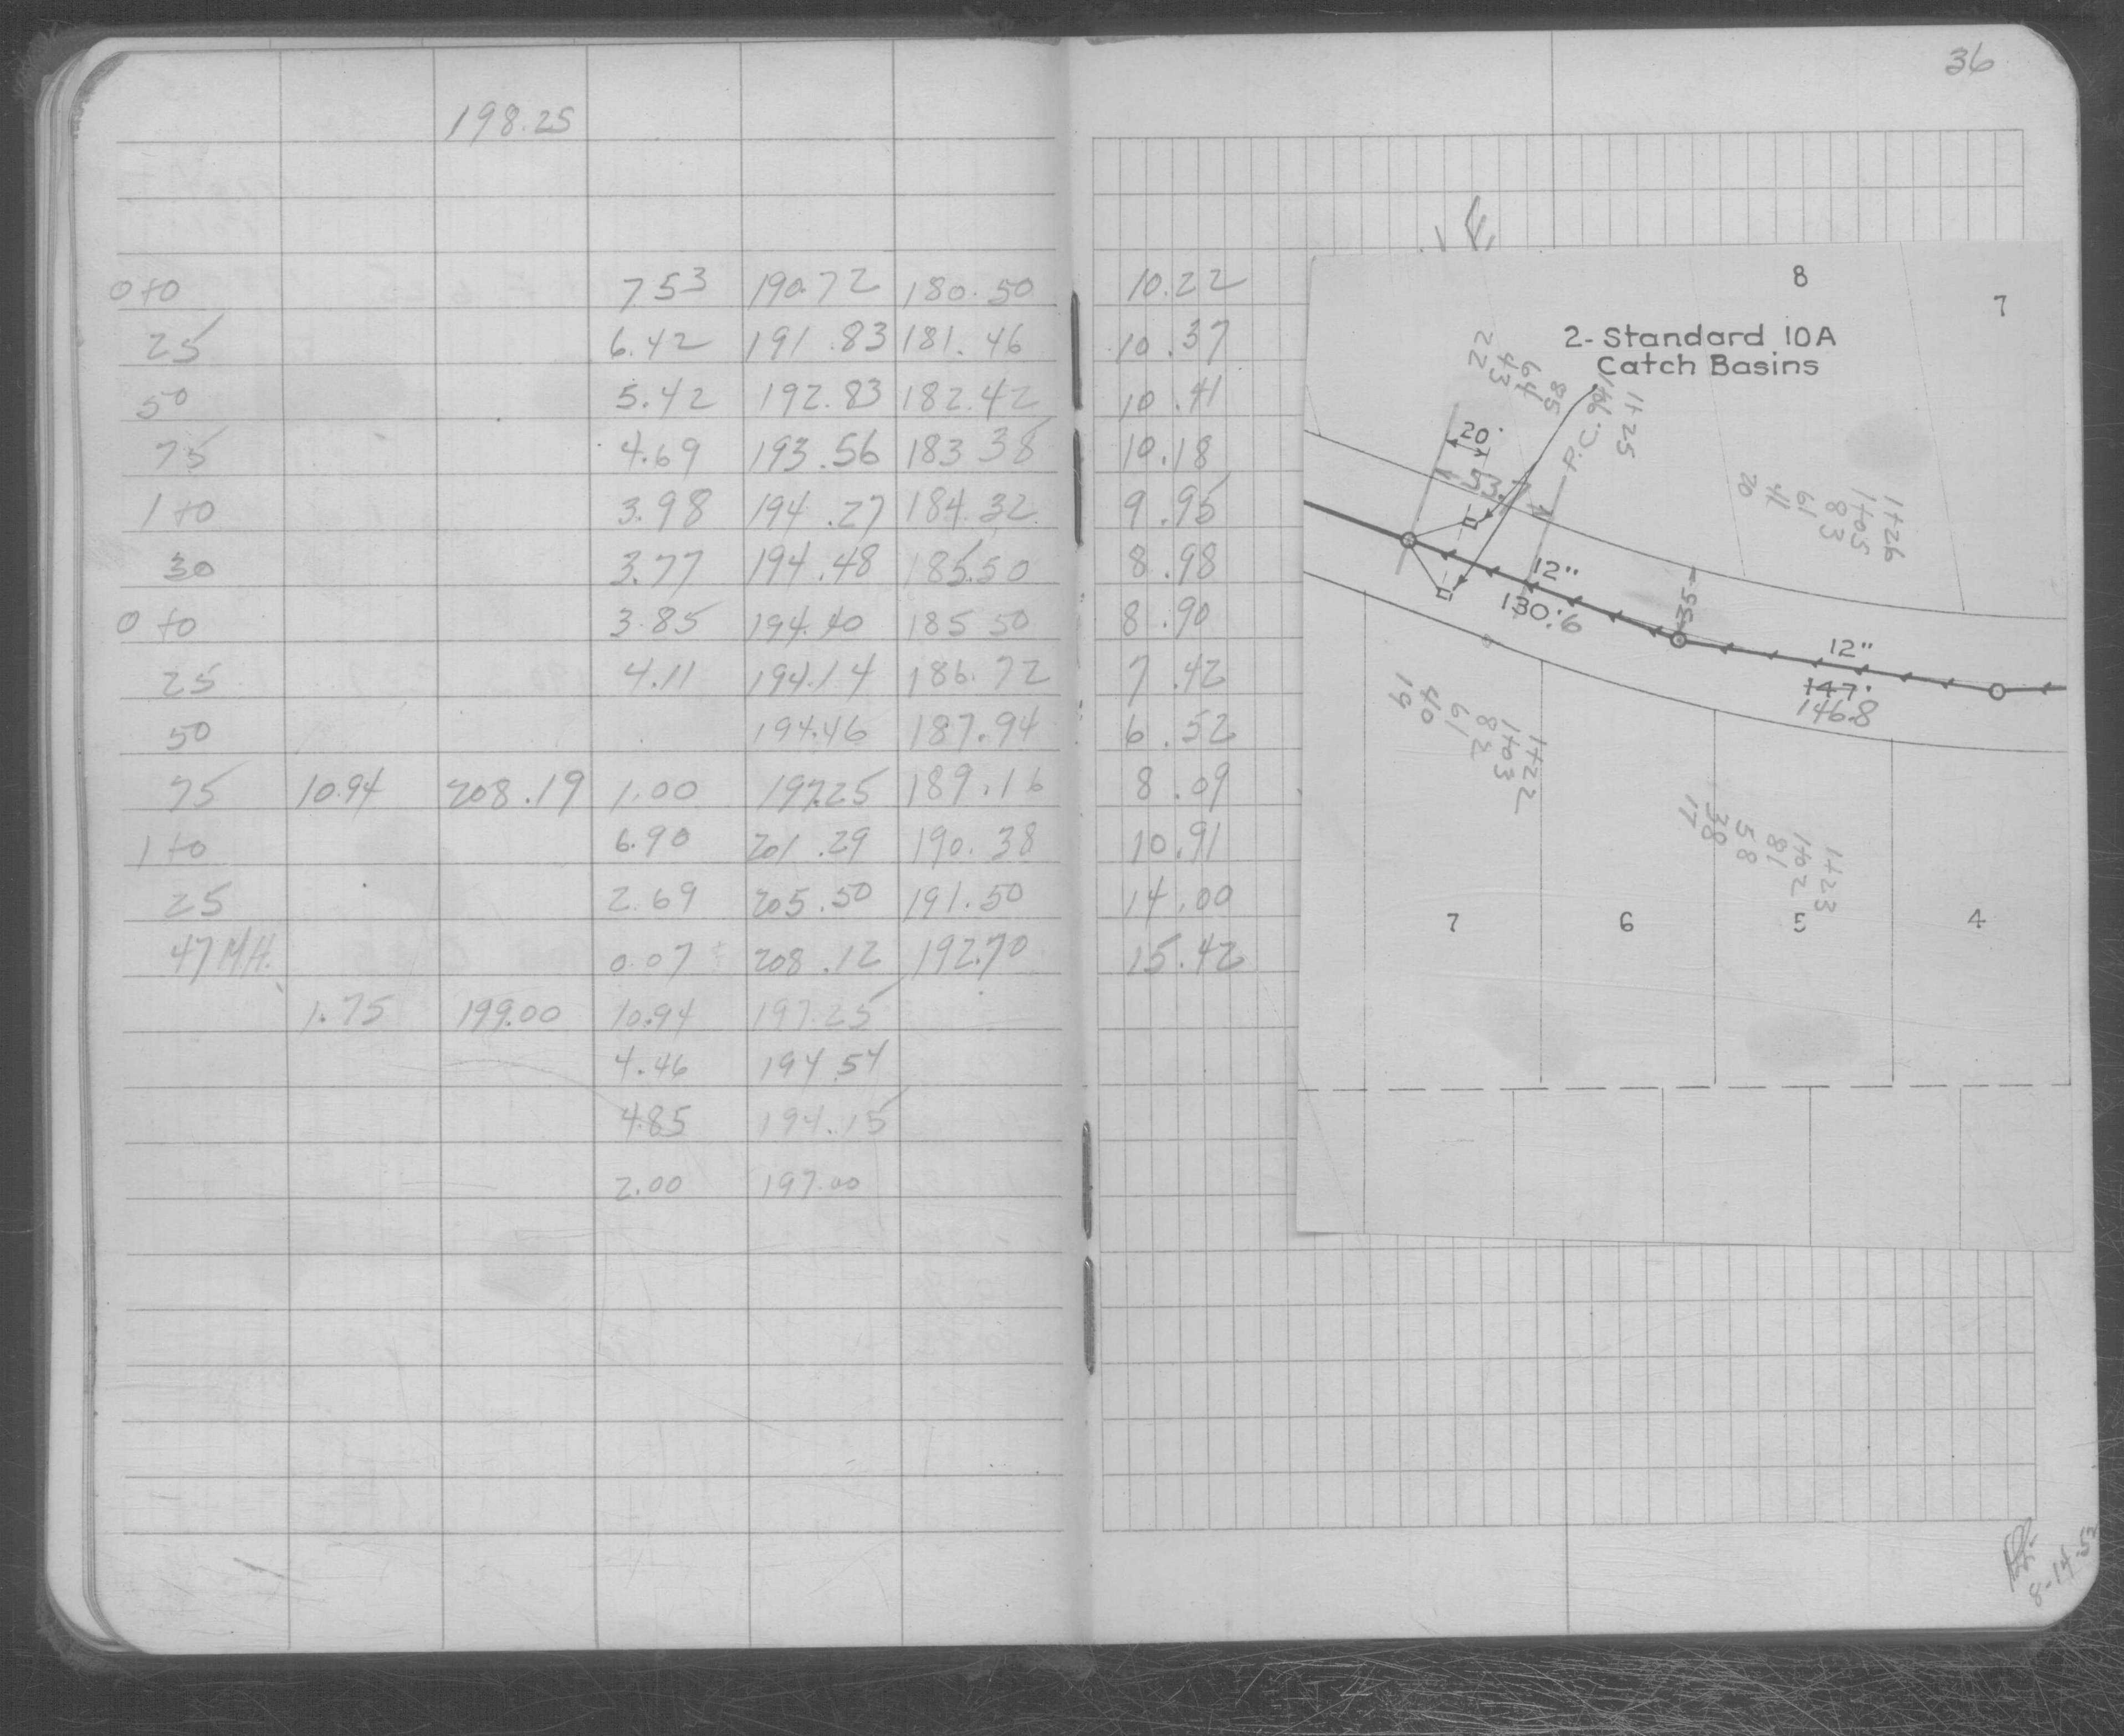 36
198.25
0+0 7.53 190.72 180.50 10.22
25 6.42 191.83 181.46 10.37
50 5.42 192.83 182.42 10.41
75 4.69 193.56 183 38 10.18
1+0 3.98 194.27 184.32 9.95
30 3.77 194.48 185.50 8.98
0+0 3.85 194.40 185 50 8.90
25 4.11 194.14 186.72 7.42
50 194.46 187.94 6.52
75 10.94 208.19 1.00 197.25 189.16 8.09
1+0 6.90 201.29 190.38 10.91
25 2.69 205.50 191.50 14.00
47 M.H. 0.07 208.12 192.70 15.42
1.75 199.00 10.94 197.25
4.46 194.54
4.85 194.15
2.00 197.00
8
7
2-Standard 10A
Catch Basins
22
43
64
85
1+06
P.C.
1+25
20'
53
20
41
61
83
1+05
1+26
12"
130.'6
35
12"
147'
146.8
19
40
61
82
1+03
1+22
17
38
58
81
1+02
1+23
7
6
5
4
8-14-52